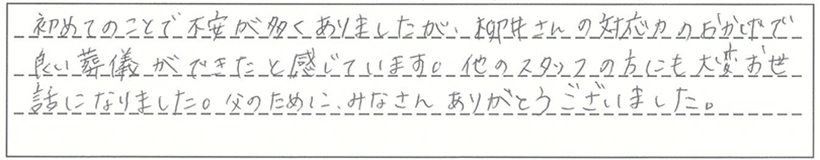 初めてのことで不安が多くありましたが、柳井さんの対応力のおかげで
良い葬儀ができたと感じています。他のスタッフの方にも大変お世
話になりました。父のために、みなさんありがとうございました。